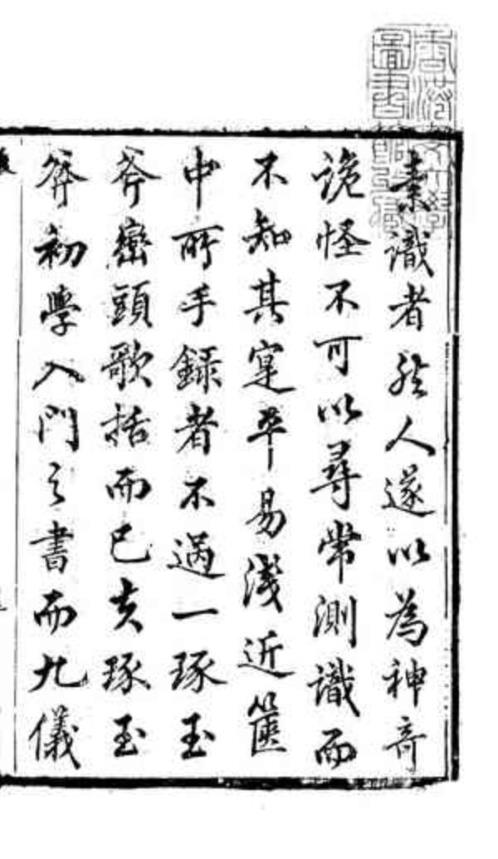 香港
圖書館
素識者人遂以為神奇
詭怪不可以尋常測識而
不知其寔平易淺近篋
中所手錄者不過一琢玉
斧巒頭歌括而已夫琢玉
斧初學入門之書而九儀